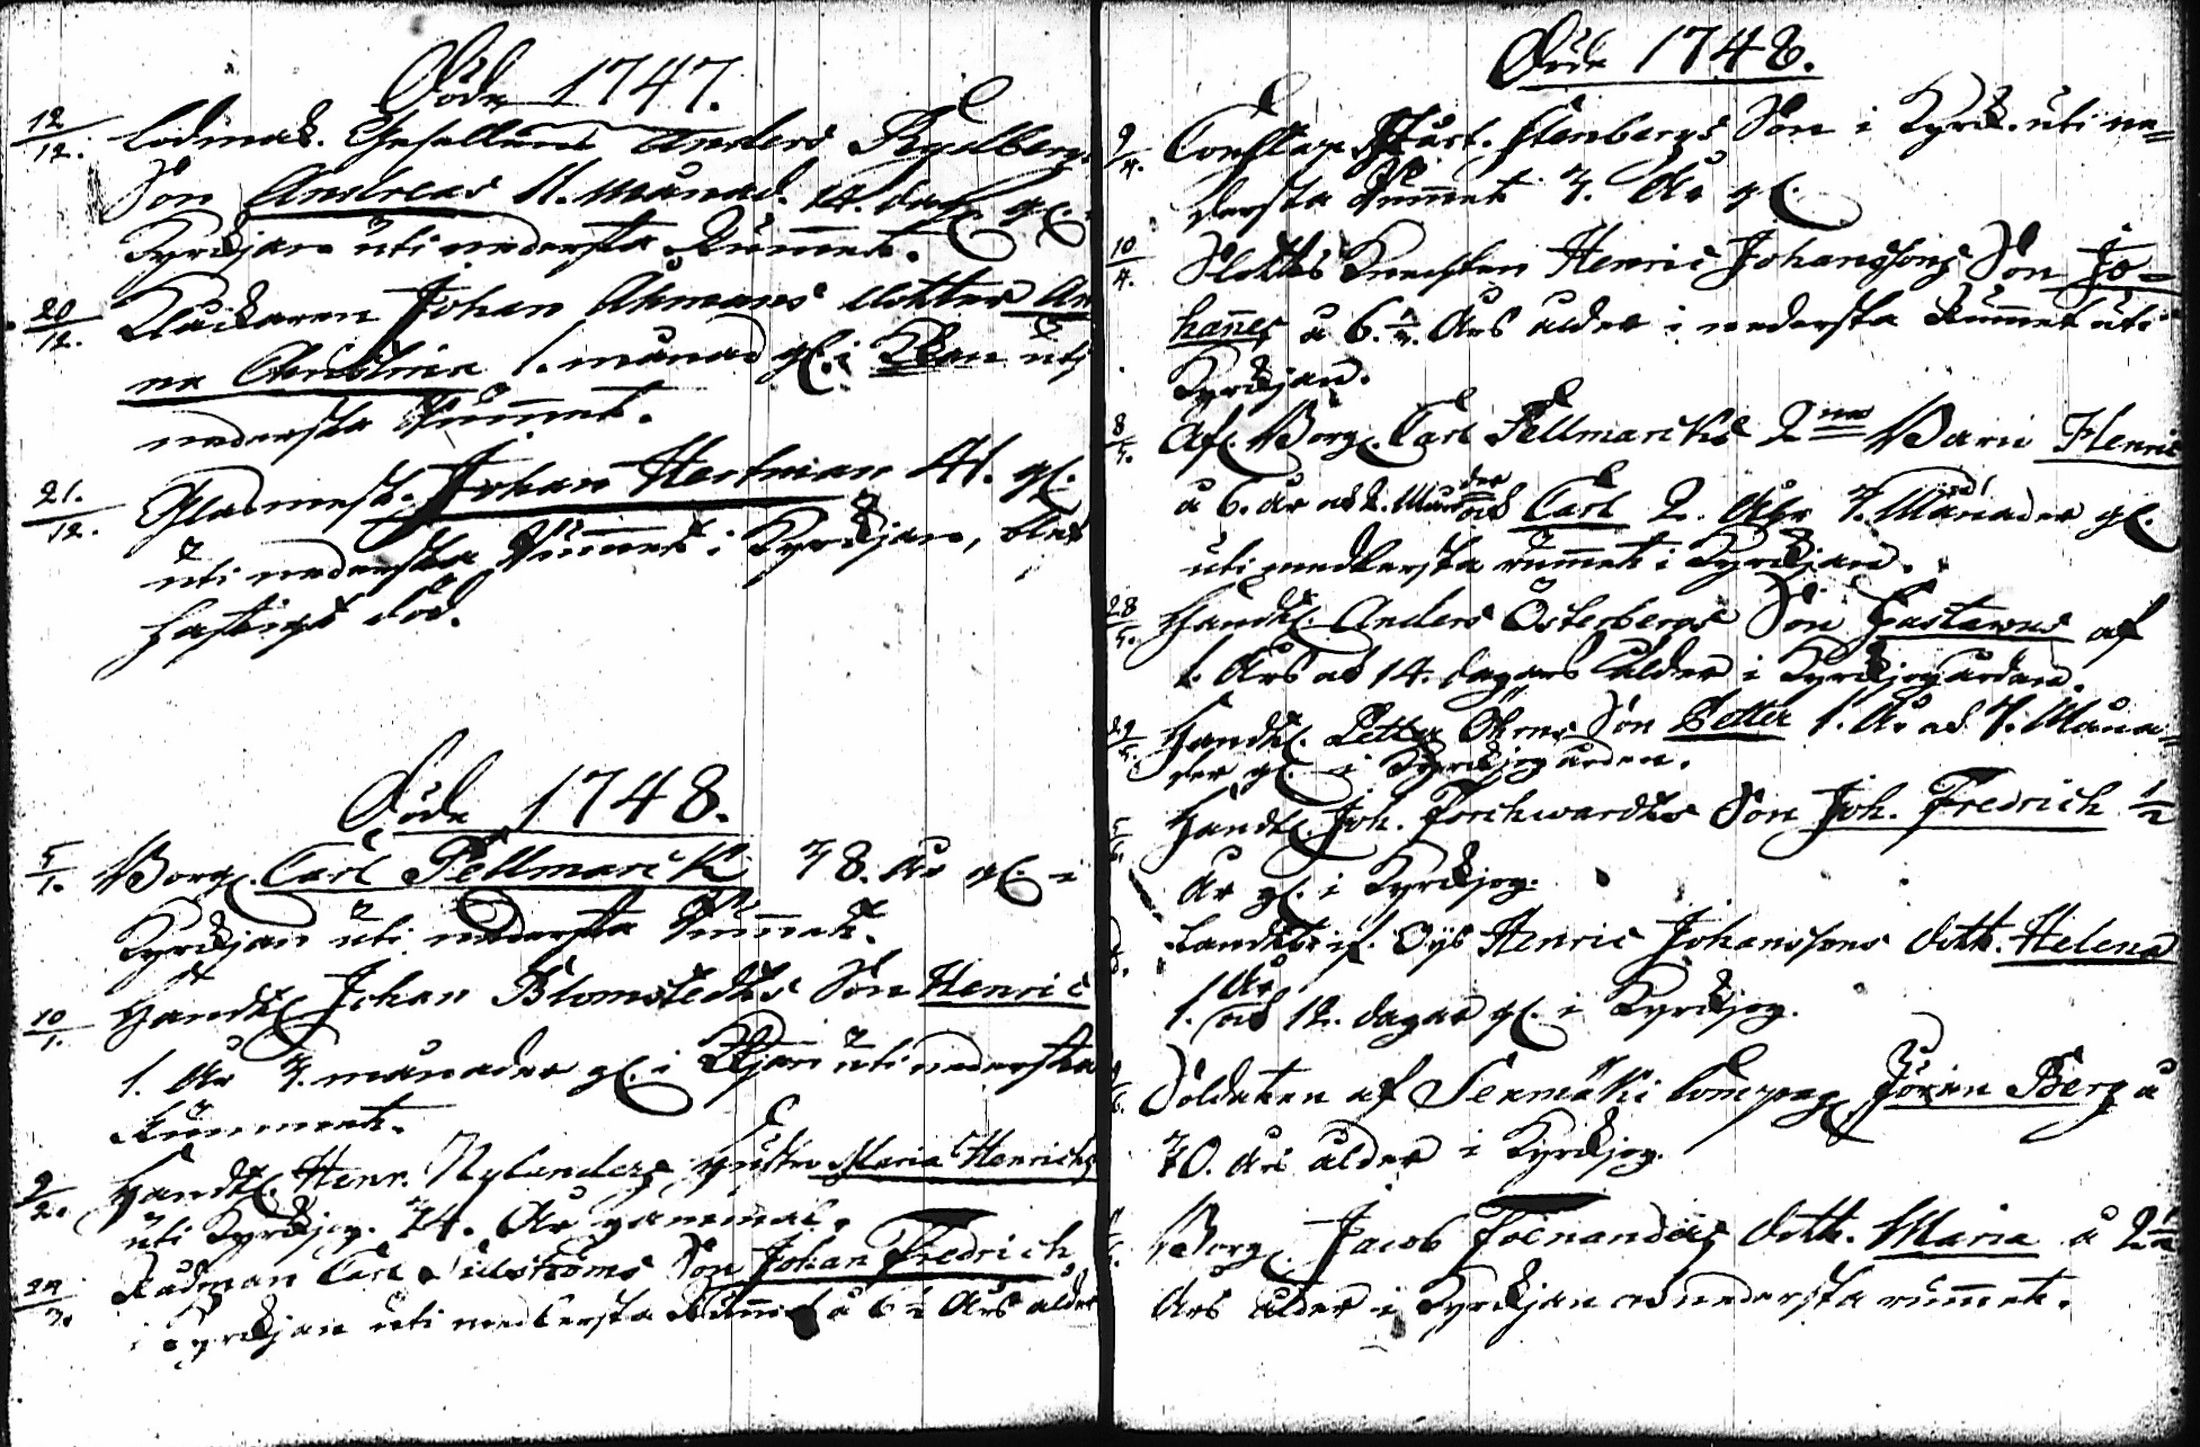 Döde 1747.
12/12. Lodmak. Gesellens Anders Kyllbergs
Son Andreas 11. månad. 14. dag. gl. i
Kyrckjan uti nedersta Rummet.
20/12. Kläckaren Johan Åhmans dotter An
na Christina 1. månad gl. i Kkan uti
nedersta Rummet.
21./12. Glasmest. Johan Hertman 41. gl.
uti nedersta Rummet i Kyrckjan, blef
hastigt död.
Döde 1748.
5/1. Borg. Carl Fellmarck 38. åhr gl. i
Kyrckjan uti nedersta Rummet.
10/1. Handl. Johan Blomstedts Son Henric
1. åhr 3. månader gl. i Kkjan uti nedersta
Rummet.
9/2. Handl. Henr. Nylanders Hustru Maria Henrichs
uti Kyrckjog. 74. åhr gammal.
24/3. Rådman Carl Sillströms Son Johan Fredrich
i Kyrckjan uti medlersta Rummet à 6 1/2 åhrs ålder
Döde 1748.
9/4. Constap. Stenbergs Son i Kyrck. uti ne=
dersta Rummet 3. åhr gl.
10/4. Slotts Knechten Henric Johanssons Son Jo=
hannes à 6. 1/2. åhrs ålder i nedersta Rummet uti
Kyrckjan.
8/5. Afl. Borg. Carl Fellmarcks 2ne Barn Henric
à 6. åhr och 2. Månader och Carl 2. åhr 7. Månader gl.
uti medlersta rummet i Kyrckjan.
28/5. Handl. Anders Österbergs Son Gustavus af
1. åhrs och 14. dagars ålder i Kyrckjogården.
29/5. Handl. Petter Öhrns Son Petter 1. åhr och 7. Måna=
der gl. i Kyrckjogården.
5/6. Handl. Joh. Forchwardts Son Joh. Fredrich 1/2
åhr gl. i Kyrckjog.
Landtbr. if. Öijs Henric Johanssons dott. Helena
1. åhr och 12. dagar gl. i Kyrckjog.
Soldaten af Sexmäki Compag. Jöran Berg à
70. åhrs ålder i Kyrckjog.
Borg. Jacob Foenanders dott. Maria à 2 1/2
åhrs ålder i Kyrckjan och nedersta rummet.